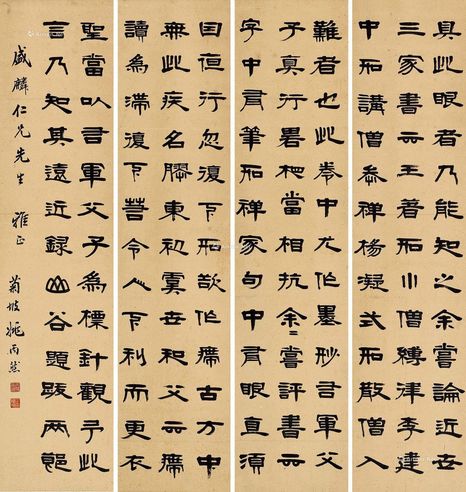 具此眼者乃能知之余嘗論近世
三家書云王著如小僧縛律李建
中如講僧參禪楊凝式如散僧入
難者也此中尤作墨妙右軍父
子真行畧當相抗余嘗評書云
字中有筆如禪家句中有眼直須
行忽復下如欲作廗古方中
無此疾名膠東初虞世和父云廗
讀為滯復下苦令人下利而更衣
聖當以右軍父子為標針觀予此
言乃知其遠近錄山谷題跋兩節
盛麟仁兄先生 雅正 菊坡姚丙然